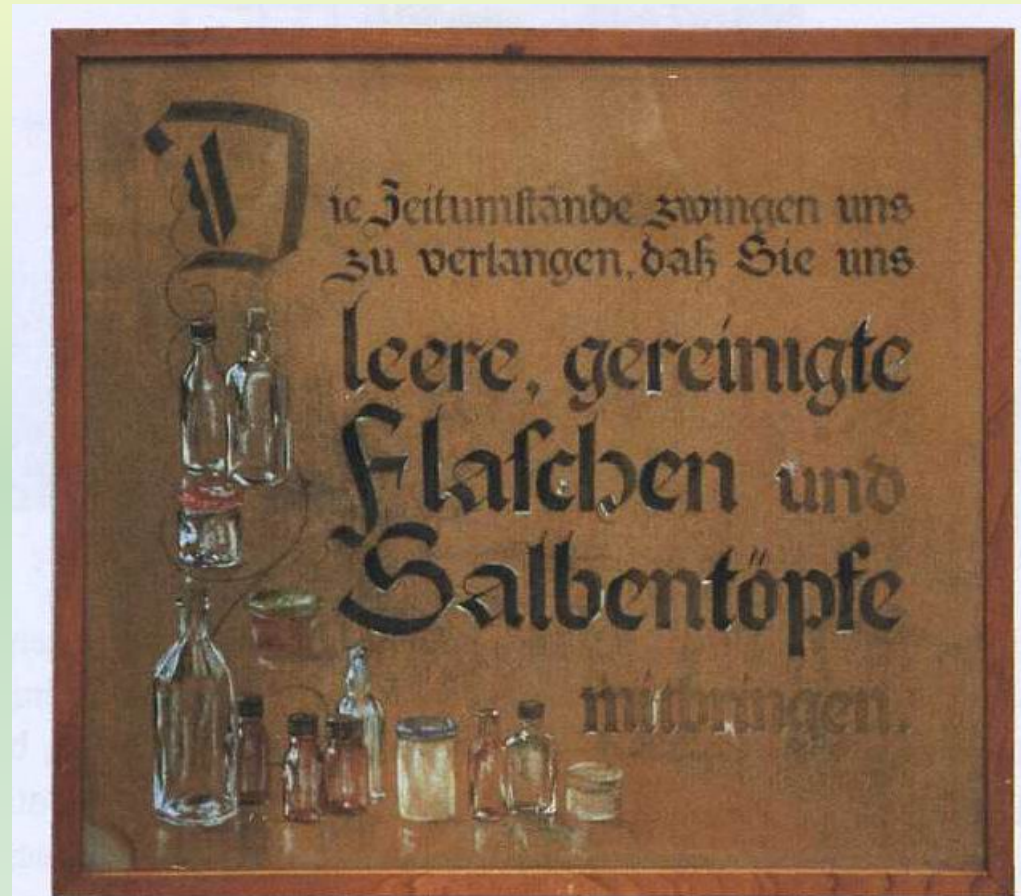 Die Zeitumstände zwingen uns
zu verlangen, daß Sie uns
leere, gereinigte
Flaschen und
Salbentöpfe
mitbringen.